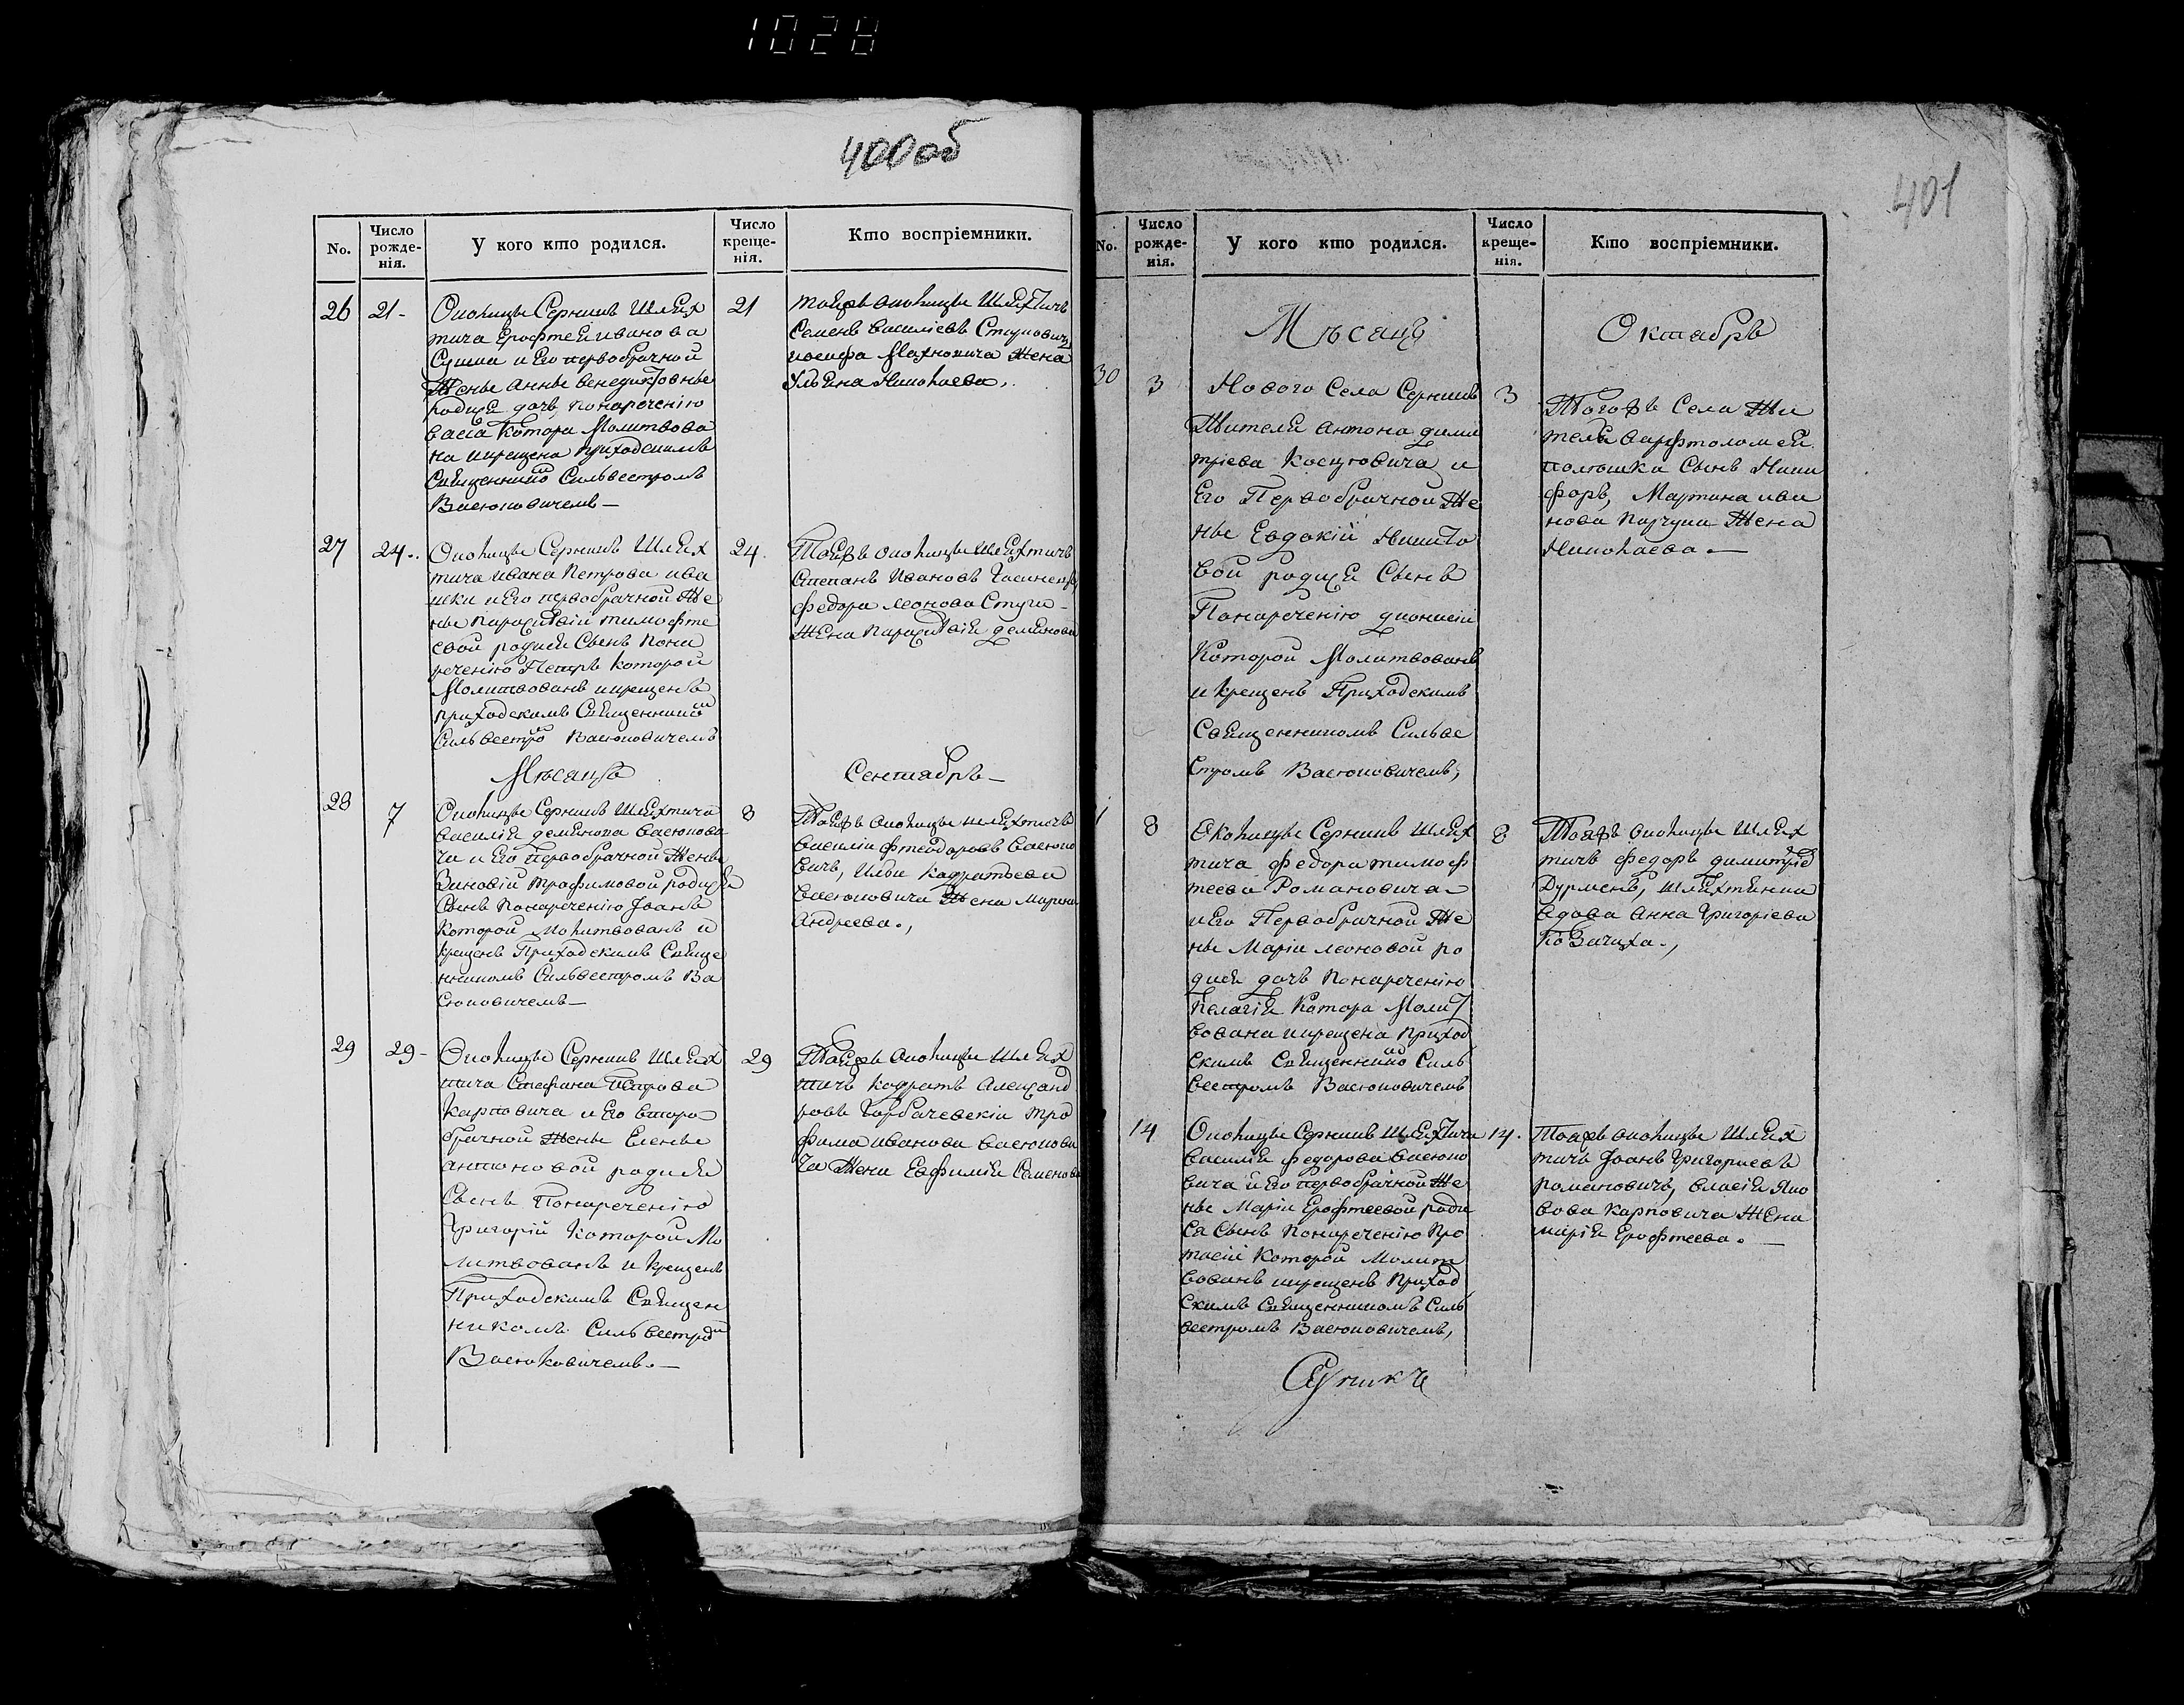 1028
400об
No.
Число рожде-
нія.
У кого кто родился.
Число креще-
нія.
Кто воспріемники.
26
21-
Околицы Серникъ Шлях
тича Ерофтея иванова
и Его первобрачной
Жены анны венедиктовны
родися дочь, понареченію
васса котора Молитвова
на икрещена приходскимъ
Священнико Сильвестромъ
Васюковичемъ—
21
тоеяжъ околицы Шляхтичъ
Семенъ василіевъ
иосифа Махновича Жена
Ульяна Николаева.
27
24..
Околицы Серникъ Шлях
тича ивана Петрова ива
шки и Его первобрачной Же
ны параскевіи тимофте
евой родися Сынъ Пона
реченію Петръ которой
Молитвованъ икрещенъ
приходскимъ Священнико
Сильвестро Васюковичемъ
24.
Тоеяжъ околицы Шляхтичъ
Степанъ Ивановъ
федора леонова
Жена Параскевія демянова
Мѣсяцъ
Сентябрь—
28
7
Околицы Серникъ Шляхтича
василія демянова васюкови
ча и Его первобрачной Жены
Зиновіи трофимовой родися
Сынъ понареченію Іоанъ
которой молитвованъ и
крещенъ Приходскимъ Свяще
нникомъ Сильвестромъ Ва
сюковичемъ—
8
Тоеяжъ околицы шляхтичъ
василіи фтеодоровъ васюко
вичъ, Ильи кодратева
васюковича Жена Марина
андреева.,
29
29-
Околицы Серникъ Шлях
тича Стефана Петрова
карповича и Его второ
брачной Жены Елены
антоновой родися
Сынъ Понареченію
Григорій которой Мо
литвованъ и крещенъ
Приходскимъ Священ
никомъ Сильвестро
Васюковичемъ.—
29
Тоеяжъ околицы Шлях
тичъ кодратъ александ
ровъ Горбачевскіи тро
фима иванова васюкови
ча Жена Евфимія Семенова
401
No.
Число рожде-
нія.
У кого кто родился.
Число креще-
нія.
Кто воспріемники.
Мѣсяцъ
Октабръ
30
3
Нового Села Серникъ
Жителя антона дими
тріева Косцювича и
Его Первобрачной Же
ны Евдокій Никито
вой родися Сынъ
Понареченію дионисіи
Которой Молитвованъ
и крещенъ Приходскимъ
Священникомъ Сильве
стромъ Васюковичемъ,
3
Тогожъ Села Жи
теля варфтоломея
Сынъ Ники
форъ, Мартина ива
нова Жена
Николаева.—
8
Околицы Серникъ Шлях
тича федора тимоф
теева Романовича
и Его Первобрачной Же
ны Маріи леоновой ро
дися дочъ Понареченію
Пелагія Котора Молит
вована икрещена приход
скимъ Священнико Силь
вестромъ Васюковичемъ
8
Тояжъ околицы Шлях
тичъ федоръ димитріе
Дурменъ, шляхтянка
вдова анна Григоріева
Козачиха.,
14
Околицы Серникъ Шляхтича
василія федорова васюко
вича и Его первобрачной Же
ны Маріи Ерофтеевой роди
ся Сынъ понареченію Про
тасій Которой Молит
вованъ икрещенъ приход
скимъ Священникомъ Силь
вестромъ Васюковичемъ,
14.
Тояжъ околицы Шлях
тичъ Іоанъ Григориевъ
романовичъ, власія Яко
вова карповича Жена
марія Ерофтеева.—